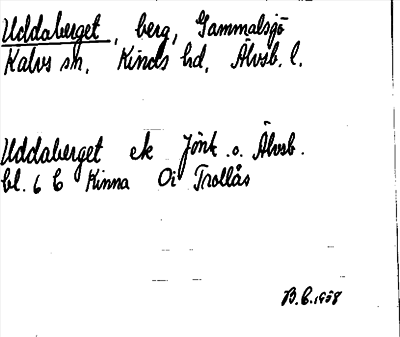 Uddaberget, berg, Gammalsjö
Kalvs sn, Kinds hd, Älvsb. l.
Uddaberget ek Jönk. o. Älvsb.
bl. 6 C Kinna Oi Trollås
B.C. 1958